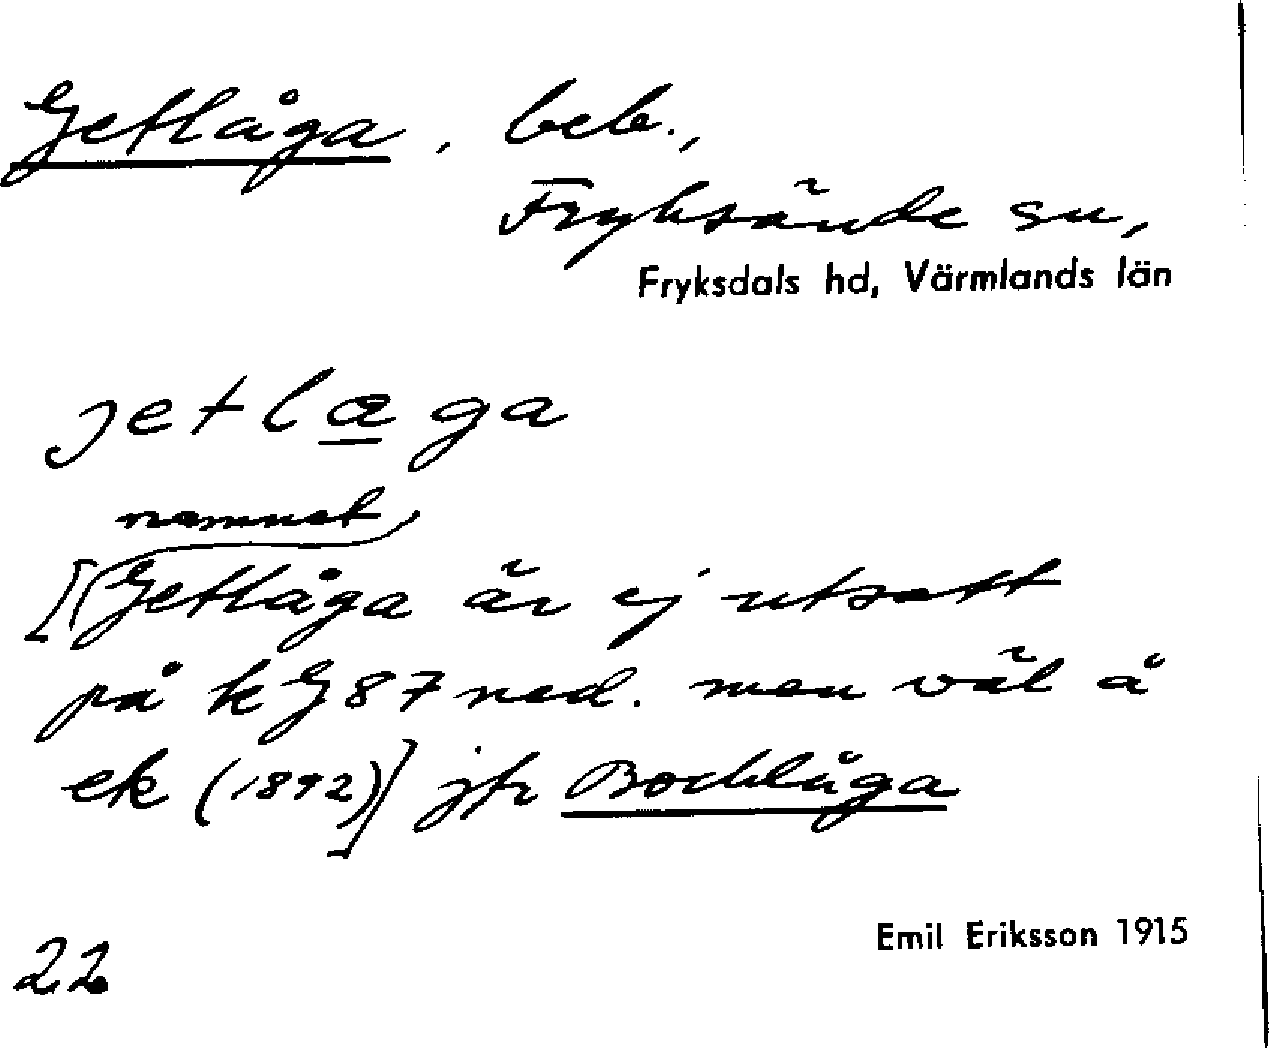 Getlåga, beb.,
Fryksände sn,
Fryksdals hd, Värmlands län
jetlæga
namnet
[(Getlåga är ej utsatt
på kG87 ned. men väl å
ek (1892)] jfr Bocklåga
Emil Eriksson 1915
22